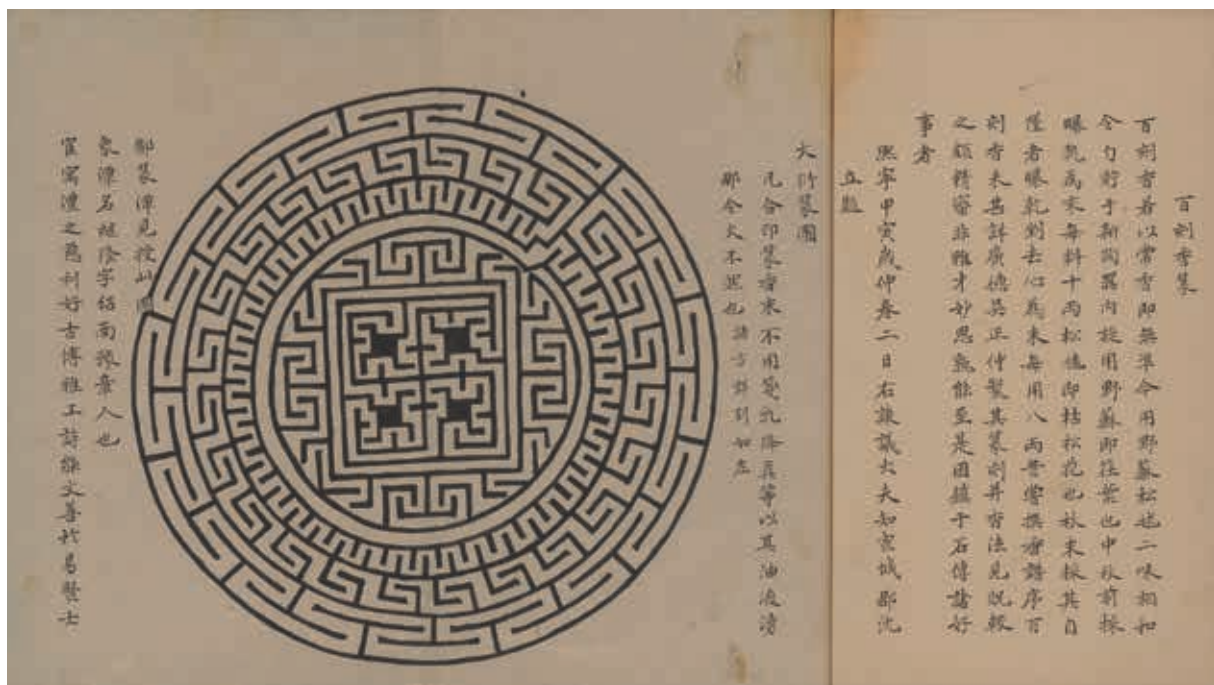 百刻香篆
百刻香若以常香即無準今用野蘇松毬二味相和
令勻貯于新陶器內旋用野蘇即荏葉也中秋前採
曝乾為末每料十兩松毬即枯松花也秋末採其自
墜者曝乾剉去心為末每用八兩昔嘗撰香譜序百
刻香未甚詳廣德吳正仲製其篆刻并香法見貺較
之頗精審非雅才妙思孰能至是因鐫于石傳諸好
事者
熙寧甲寅歲仲春二日右諫議大夫知宣城郡沈
立題
大衍篆圖
凡合印篆香末不用箋乳降真等以其油液湧
沸令火不然也諸方詳列如左
鄒篆渾見授此圖
象渾名繼隆字紹南豫章人也
宦寓澧之慈利好古博雅工詩能文善於易賢士